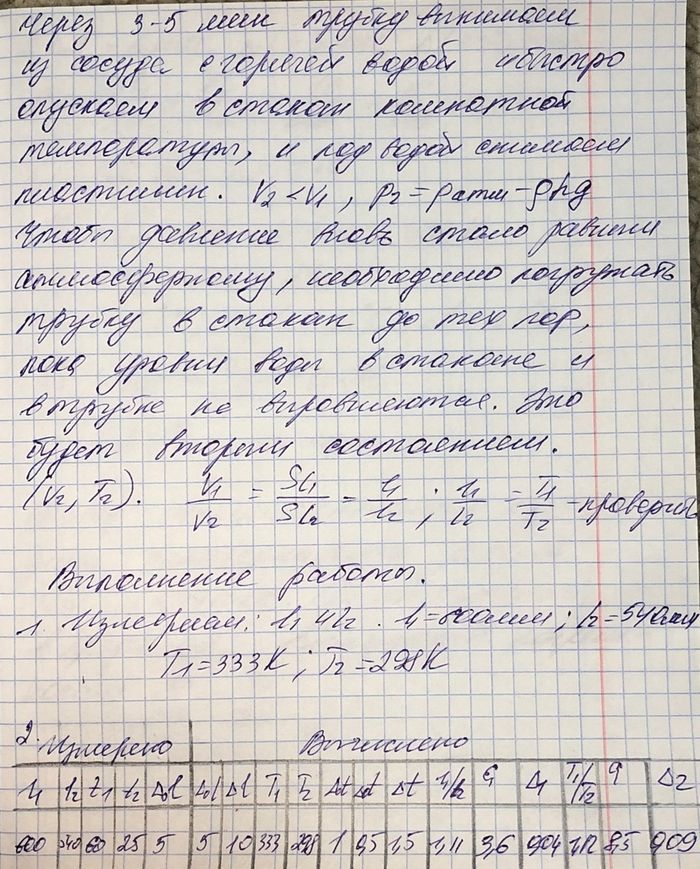 через 3-5 мин трубку вынимаем
из сосуда с горячей водой и быстро
опускаем в стакан комнатной
температуры, и под водой снимаем
пластилин. V₂ < V₁, p₂ = pатм - ρhg
Чтобы давление вновь стало равным
атмосферному, необходимо погружать
трубку в стакан до тех пор,
пока уровни воды в стакане и
в трубке не выровняются. Это
будет вторым состоянием.
(V₂, T₂). V₁/V₂ = Sl₁/Sl₂ = l₁/l₂ ; l₁/l₂ = T₁/T₂ -проверить
Выполнение работы.
1. Измеряем: l₁ и l₂. l₁=600мм; l₂=540мм
T₁=333К; T₂=298К
2. Измерено Вычислено
l₁ l₂ t₁ t₂ Δиl Δоl Δl T₁ T₂ Δиt Δоt Δt l₁/l₂ ε₁ Δ₁ T₁/T₂ Δ₂
600 540 60 25 5 5 10 333 298 1 0,5 1,5 1,11 3,6 0,04 1,12 0,09